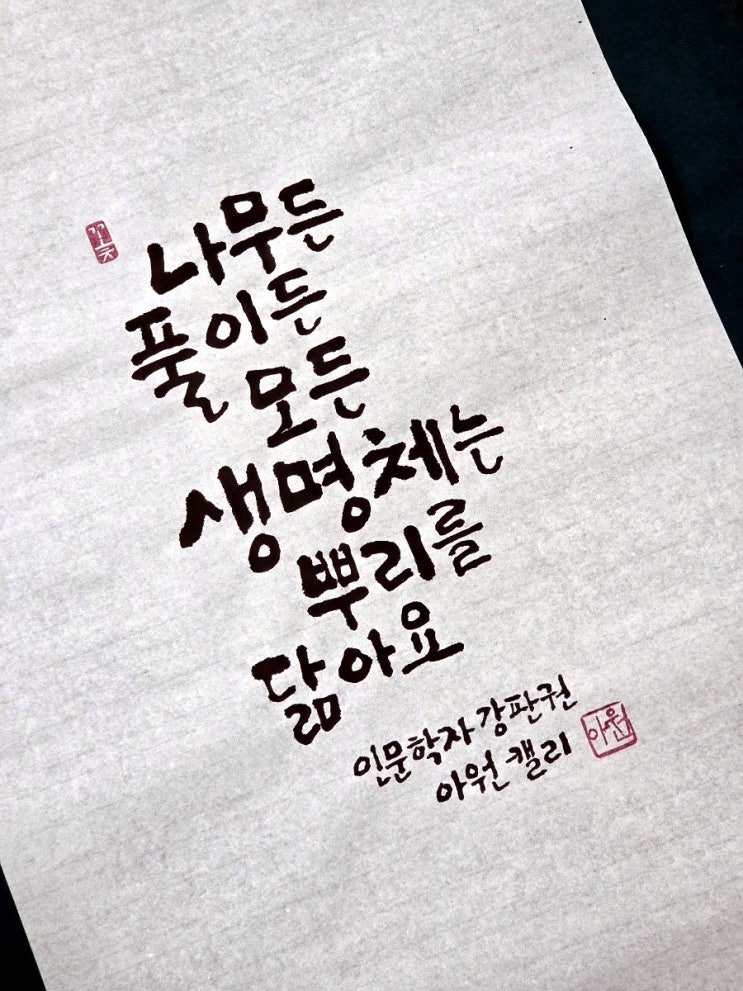 꽃
나무든
풀이든
모든
생명체는
뿌리를
닮아요
인문학자 강판권
아원 캘리
아원